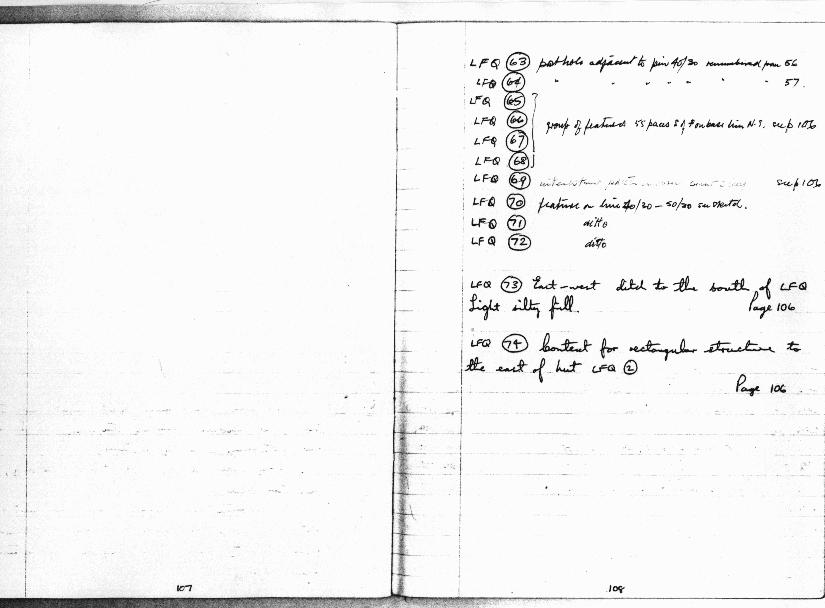 LFQ 63 posthole adjacent to pin 40/30 remembered from 56
LFQ 64 " " " " " " 57.
LFQ 65
LFQ 66 group of features 55 paces S of base line N.S. see p 106
LFQ 67
LFQ 68
LFQ 69 see p 106
LFQ 70 feature on line 40/20 – 50/20
LFQ 71 ditto
LFQ 72 ditto
LFQ 73 East-west ditch to the south of LFQ
Light silty fill. Page 106
LFQ 74 Context for rectangular structure to
the east of hut LFQ 2
Page 106
107
108